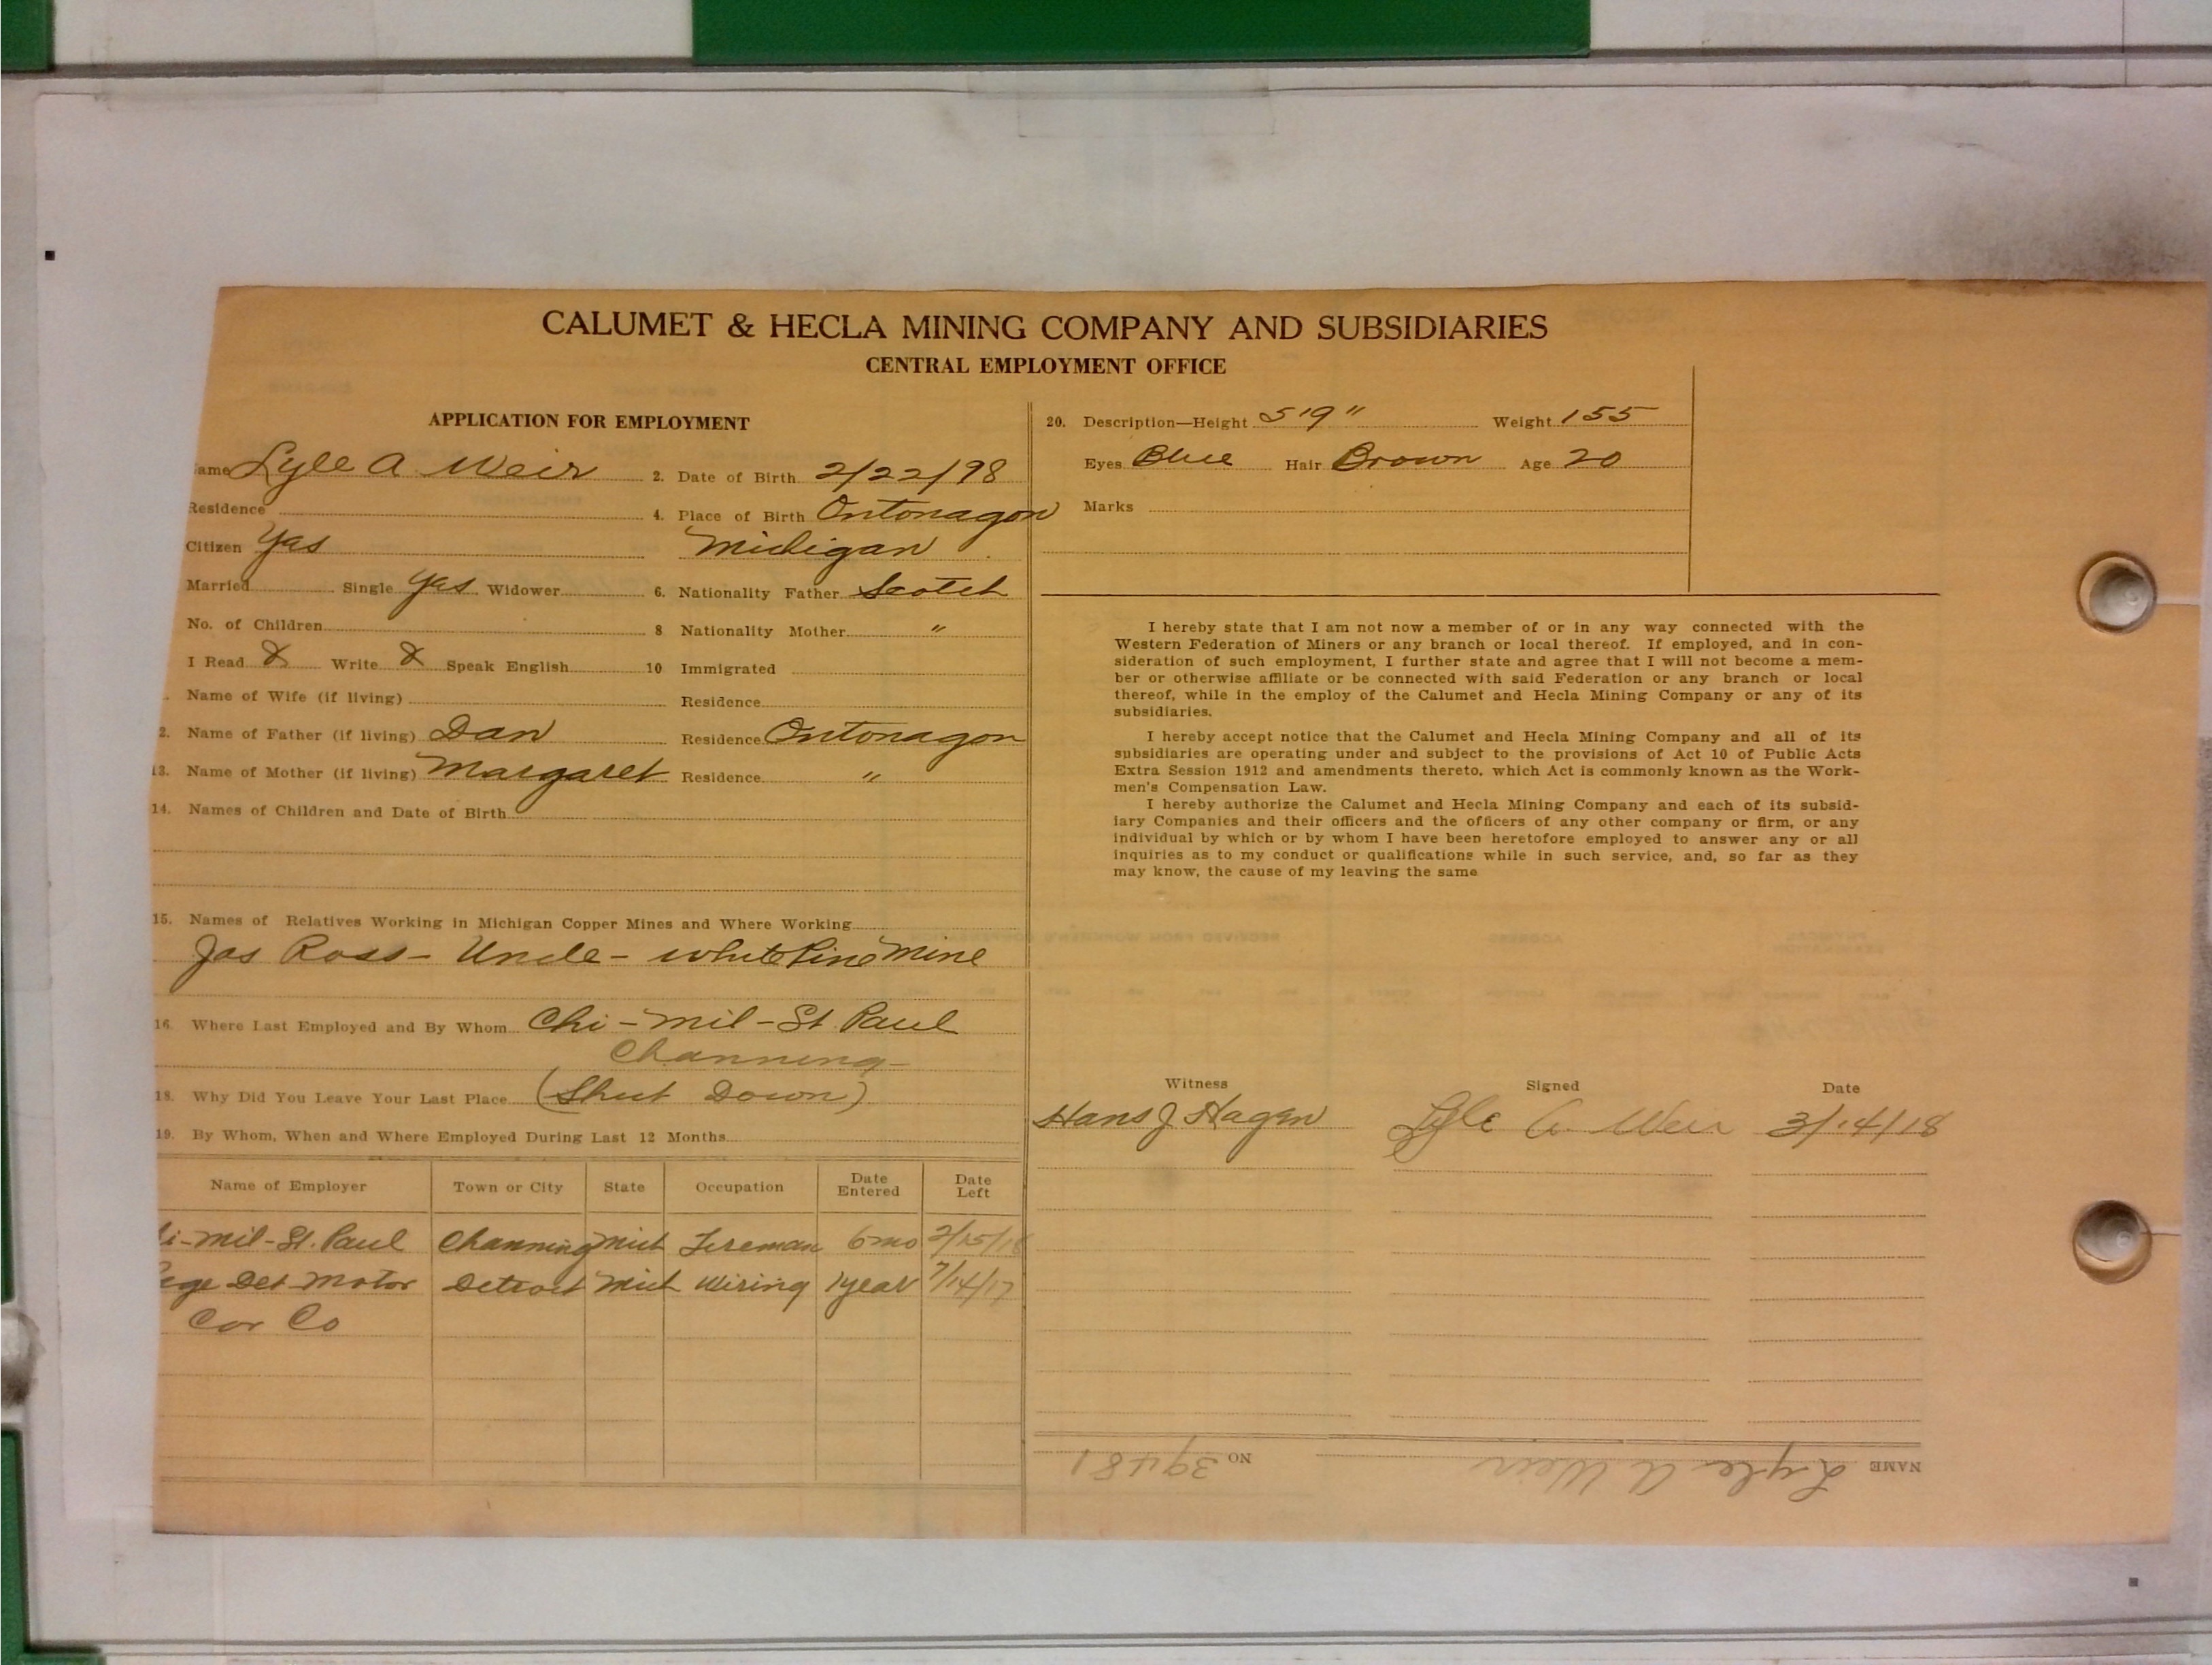 CALUMET & HECLA MINING COMPANY AND SUBSIDIARIES
CENTRAL EMPLOYMENT OFFICE
APPLICATION FOR EMPLOYMENT
ame Lyle A Weir 2. Date of Birth 2/22/98
Residence 4. Place of Birth Ontonagon
Citizen Yas Michigan
Married Single Yas Widower 6. Nationality Father Scotch
No. of Children 8 Nationality Mother "
I Read X Write X Speak English 10 Immigrated
. Name of Wife (if living) Residence
2. Name of Father (if living) Dan Residence Ontonagon
13. Name of Mother (if living) Margaret Residence "
14. Names of Children and Date of Birth
15. Names of Relatives Working in Michigan Copper Mines and Where Working
Jas Ross - Uncle - White Pine Mine
16. Where Last Employed and By Whom Chi - Mil - St. Paul
Channing
18. Why Did You Leave Your Last Place (Shut Down)
19. By Whom, When and Where Employed During Last 12 Months
Name of Employer Town or City State Occupation Date Entered Date Left
i-Mil-St. Paul Channing Mich Fireman 6 mo 2/15/18
Det Motor Detroit Mich Wiring 1 year 7/14/17
Car Co
20. Description—Height 5'9" Weight 155
Eyes Blue Hair Brown Age 20
Marks
I hereby state that I am not now a member of or in any way connected with the
Western Federation of Miners or any branch or local thereof. If employed, and in con-
sideration of such employment, I further state and agree that I will not become a mem-
ber or otherwise affiliate or be connected with said Federation or any branch or local
thereof, while in the employ of the Calumet and Hecla Mining Company or any of its
subsidiaries.
I hereby accept notice that the Calumet and Hecla Mining Company and all of its
subsidiaries are operating under and subject to the provisions of Act 10 of Public Acts
Extra Session 1912 and amendments thereto, which Act is commonly known as the Work-
men's Compensation Law.
I hereby authorize the Calumet and Hecla Mining Company and each of its subsid-
iary Companies and their officers and the officers of any other company or firm, or any
individual by which or by whom I have been heretofore employed to answer any or all
inquiries as to my conduct or qualifications while in such service, and, so far as they
may know, the cause of my leaving the same
Witness Signed Date
Hans J Hagen Lyle A. Weir 3/14/18
NAME Lyle A Weir NO 39481